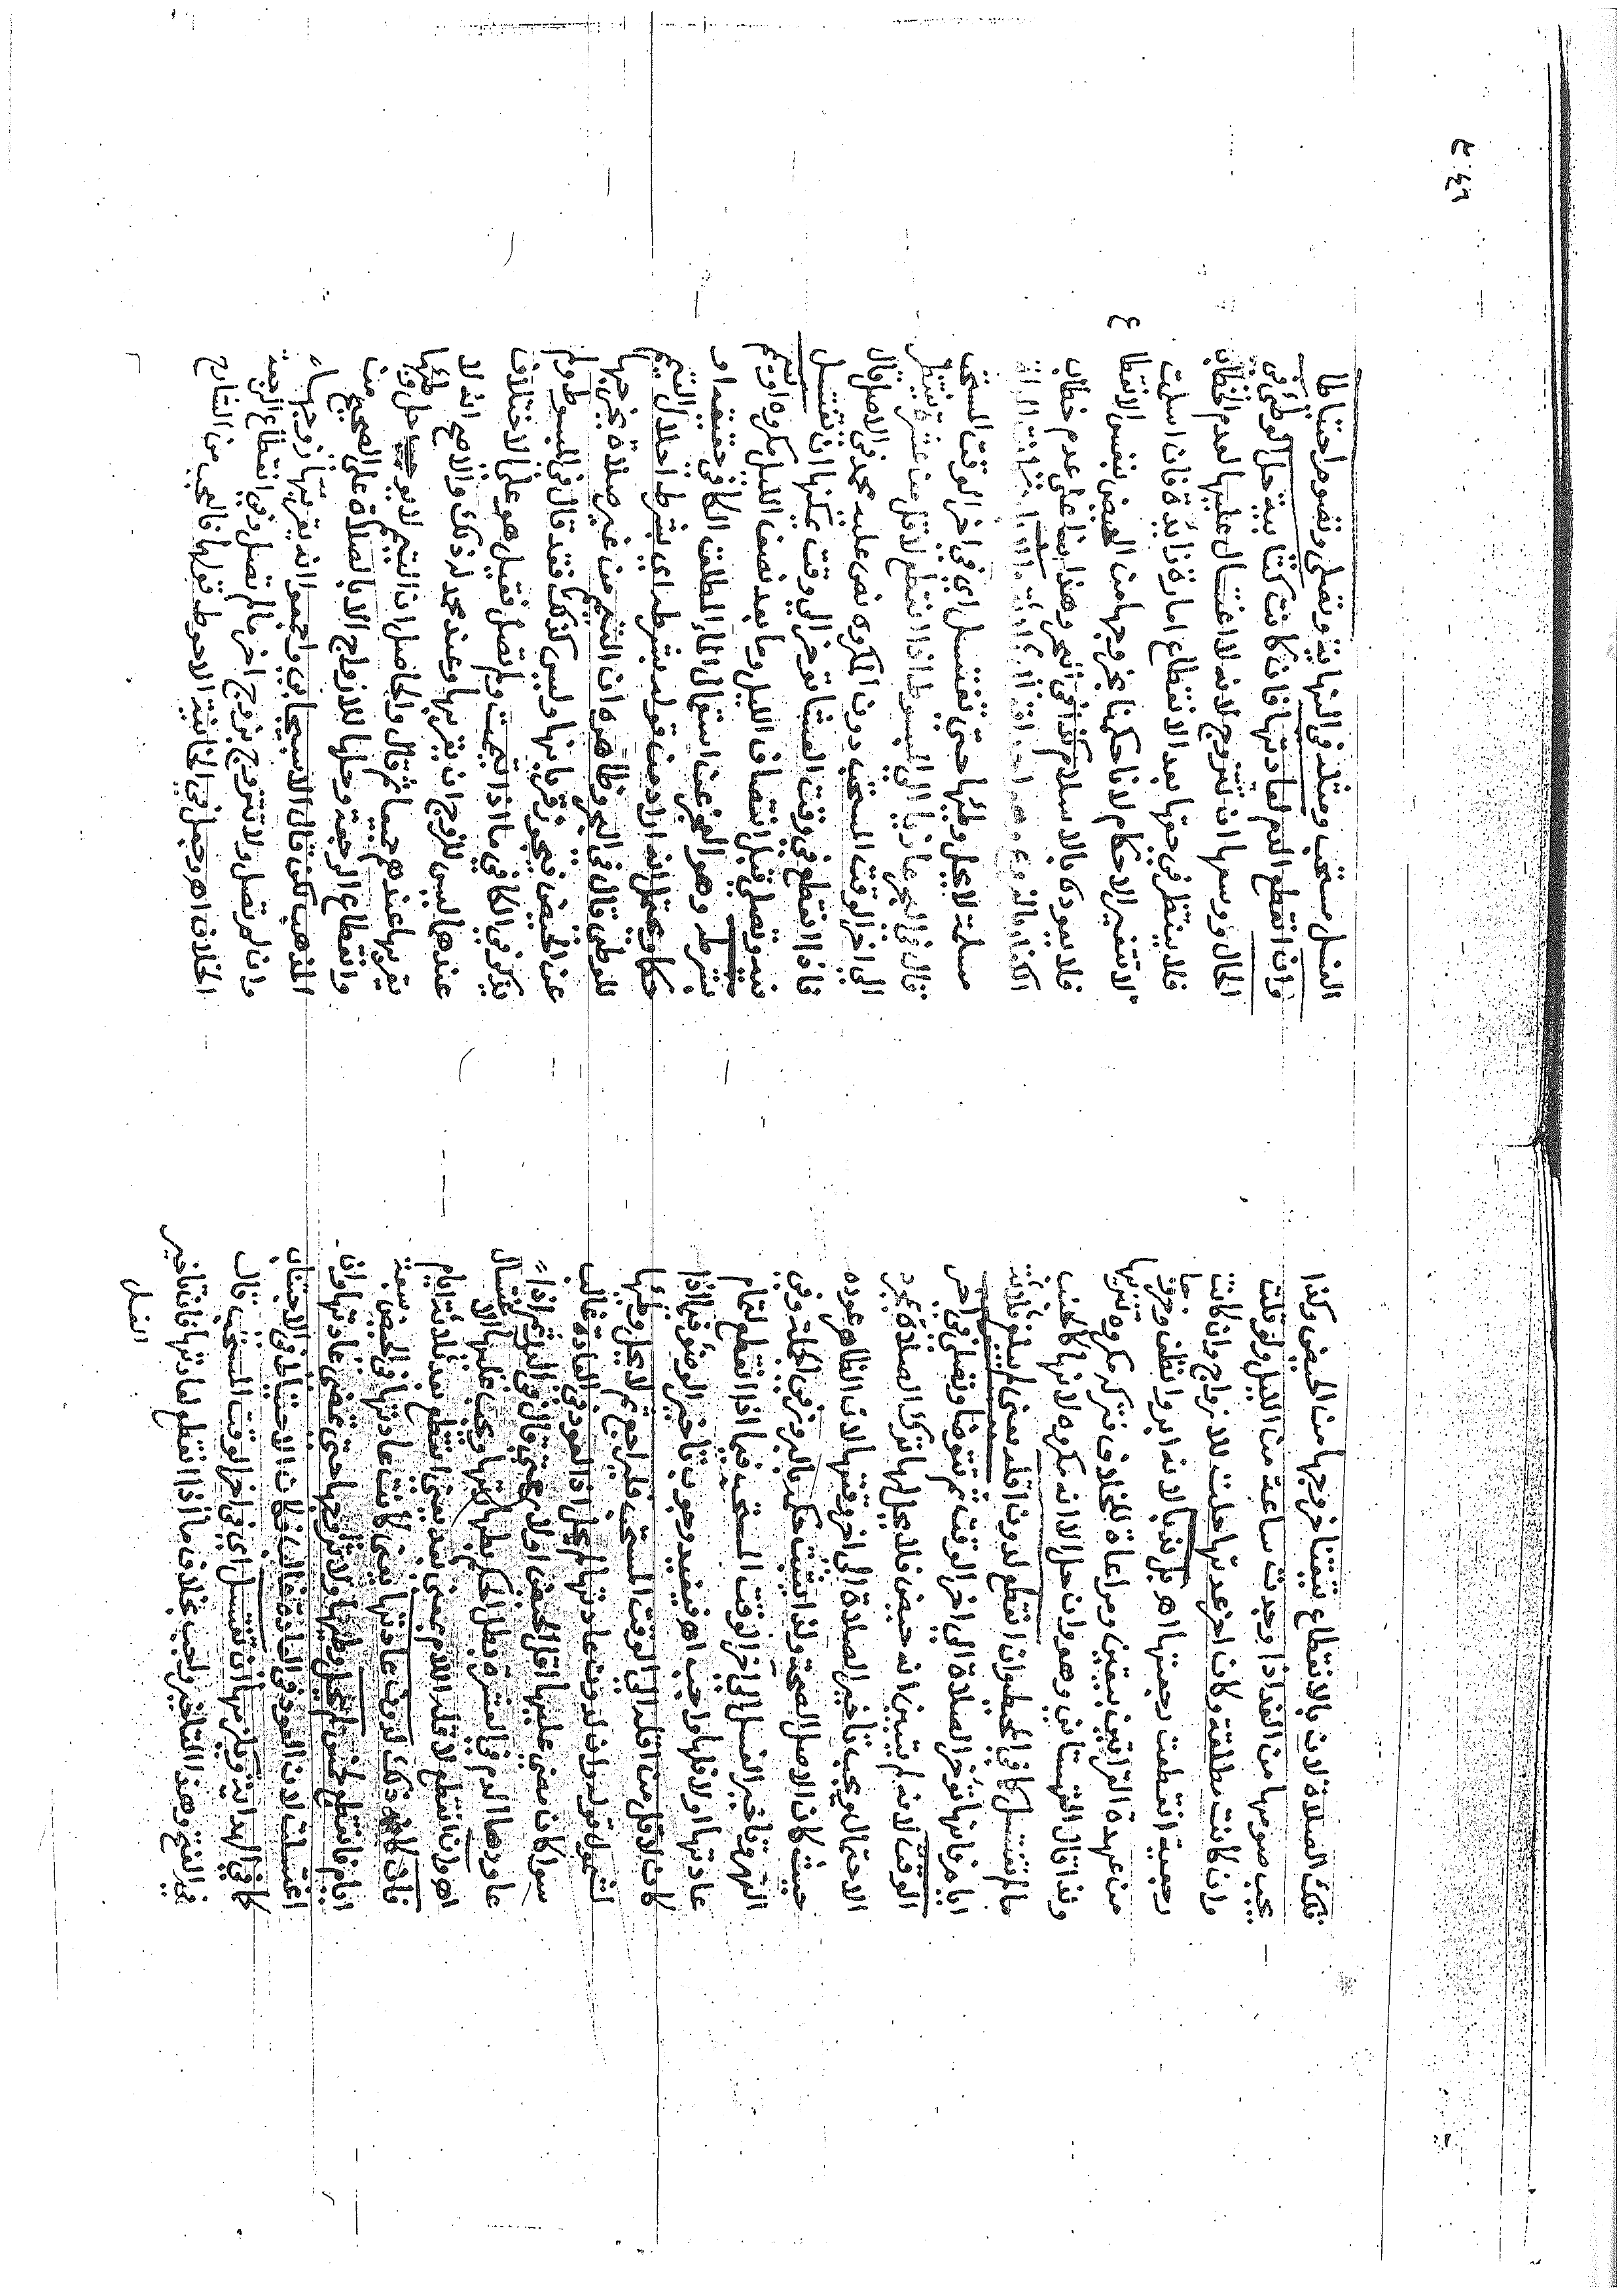 تلك الصلاة لان بالانقطاع تيقنا خروجها من الحيض وكذا
يجب صومها من الغد اذا وجدت ساعة من الليل ولو قلت
وان كانت مطلقة وكان اخر عدتها حلت للازواج وان كانت
رجعية انقطعت رجعتها اه
من عهدة القراتين بيقين ومراعاة للخلاف فتركه مكروه تنزيها
ولذا قال القهستاني وهو وان حل الا انه مكروه لانها كالجنب
مالم تغتسل كما في المحيط وان انقطع لدون اقله يعني لم يبلغ ثلاثة
ايام فانها تؤخر الصلاة الى اخر الوقت ثم تتوضا وتصلي في اخر
الوقت لانه لم يتبين انه حيض فلا يحل لها ترك الصلاة بمجرد
الاحتمال ويجب تاخير الصلاة الى اخر وقتها لان الظاهر عوده
حيث كان الاصل الصحة ولذا يثبت حكمه بالبروز في الجملة وفي
النهر وتاخير الغسل الى اخر الوقت المستحب فيما اذا انقطع لتمام
عادتها اولاقلها واجب اه فيفيد وجوب تاخير الوضوء فيما اذا
كان لاقل من اقله الى الوقت المستحب فليراجع ثم لا يحل وطئها
لشمول قوله وان لدون عادتها لم يحل اذ العود في العادة غالب
سوا كان مضى عليها اقل الحيض او لا
عاودها الدم في العشرة بطل الحكم بطهارتها ويجب عليها الاغتسال
اهـ وان انقطع لاقله اللام بمعنى بعد يعني انقطع بعد ثلاثة ايام
فان كان ذلك لدون عادتها يعني كانت عادتها في الحيض سبعة
ايام فانقطع لخمس لم يحل وطئها ولا تزوجها حتى تمضي عادتها وان
اغتسلت لان العود في العادة غالب فكان الاحتياط في الاجتناب
كما في الهداية ويلزمها ان تغتسل اي في اخر الوقت المستحب قال
في الفتح وهذا التاخير واجب بخلاف ما اذا انقطع لعادتها فان تاخير
الغسل
الغسل مستحب ومثله في النهاية وتصلي وتصوم احتياطا
وان انقطع الدم لعادتها فان كانت كتابية حل الوطئ في
الحال ووسعها ان تتزوج لانه لا اغتسال عليها لعدم الخطاب
فلا ينتظر في حقها بعد الانقطاع امارة زايدة فان اسلمت
لا تتغير الاحكام لانا حكمنا بخروجها من الحيض بنفس الانقطاع
فلا يعود بالاسلام كذا في البحر وهذا بناء على عدم خطاب
مسلمة لا يحل وطئها حتى تغتسل اي في اخر الوقت المستحب
قال في البحر عازيا الى المبسوط اذا انقطع لاقل من عشرة تنتظر
الى اخر الوقت المستحب دون المكروه نص عليه محمد في الاصل قال
فاذا انقطع في وقت العشا تؤخر الى وقت يمكنها ان تغتسل
فيه وتصلي قبل انتصاف الليل وما بعد نصف الليل مكروه او تتيمم
بشرطه وهو العجز عن استعمال الماء المطلق الكافي حقيقة او
حكما ويحتمل انه اراد من قوله بشرطه اي بشرط احلال التيمم
للوطئ قال في البحر وظاهره ان التيمم من غير صلاة يخرجها
عن الحيض فيجوز قربانها وليس كذلك فقد قال في المبسوط ولم
يذكر في الكافي ما اذا تيممت ولم تصل فقيل هو على الاختلاف
عندهما ليس للزوج ان يقربها وعند محمد له ذلك والاصح انه لا
يقربها عندهم جميعا ثم قال والحاصل ان التيمم لا يوجب حل وطئها
وانقطاع الرجعة وحلها للازواج الا بالصلاة على الصحيح من
المذهب لكن قال الاسبيجابي واجمعوا انه يقربها زوجها
وان لم تصل ولا تتزوج بزوج اخر مالم تصل وفي انقطاع الرجعة
الخلاف اهـ وجعل في الخانية الاحوط قولهما فالعجب من الشارح